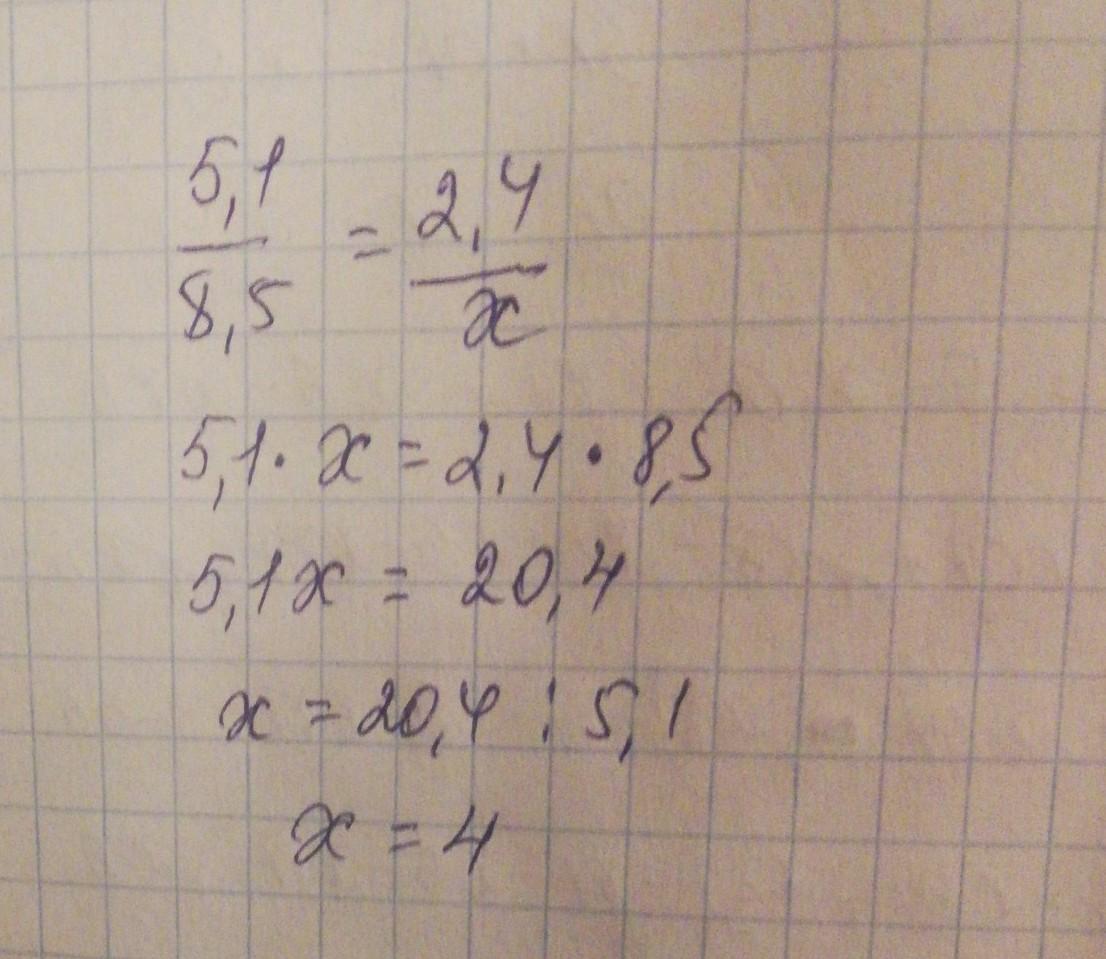 5,1/8,5 = 2,4/x
5,1 · x = 2,4 · 8,5
5,1x = 20,4
x = 20,4 : 5,1
x = 4